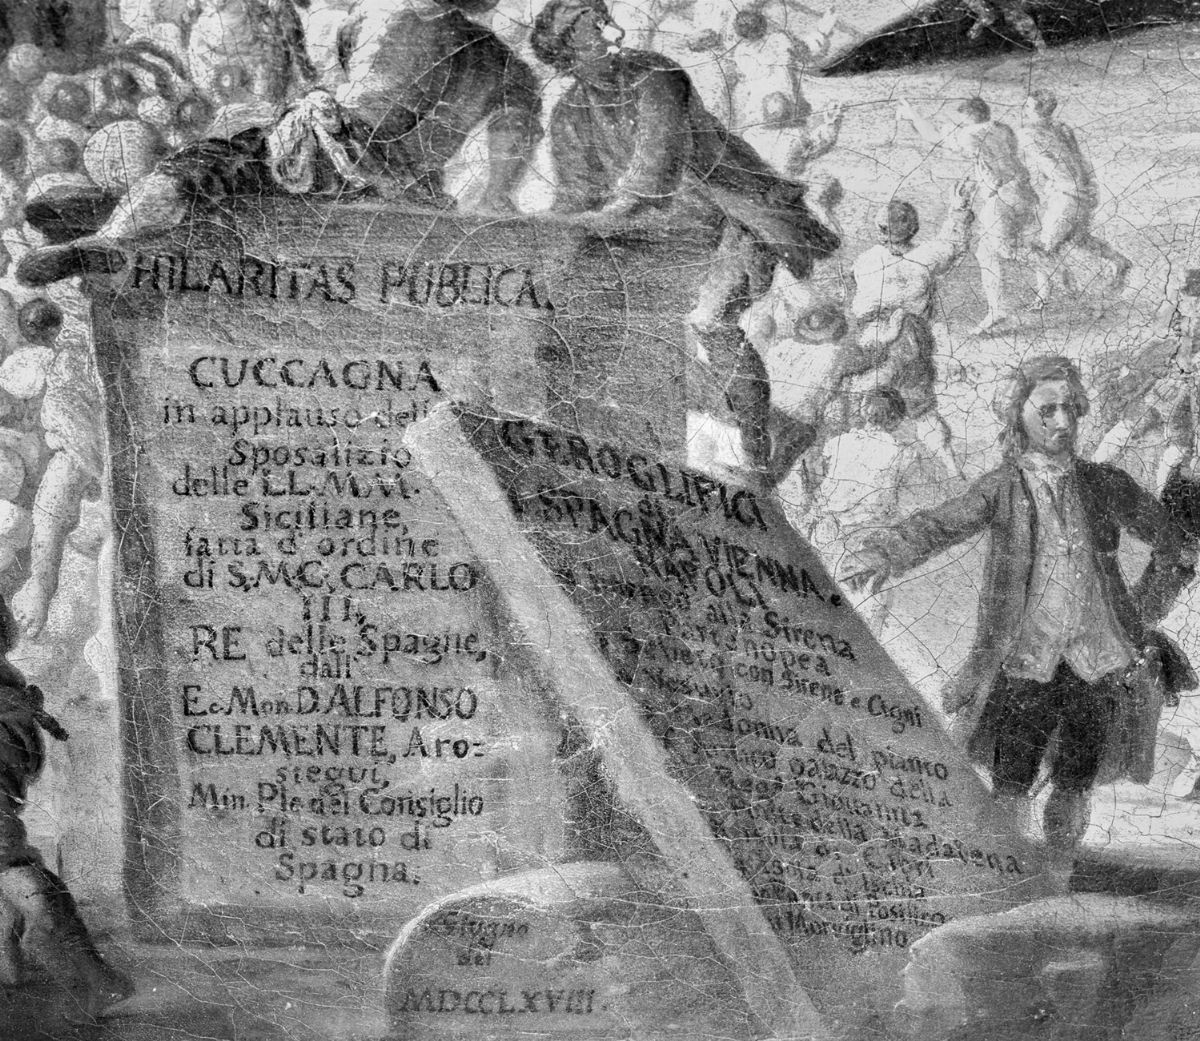 HILARITAS PUBLICA.
CUCCAGNA
in applauso dell
Sposalizio
delle LL.M.M.
Siciliane,
fatta d'ordine
di S.M.C. CARLO
III,
RE delle Spagne,
dall'
E. Mon. D. ALFONSO
CLEMENTE, Aro=
stegui,
Min. Ple del Consiglio
di stato di
Spagna.
Giugno
del
MDCCLXVIII.
GEROGLIFICI
di
SPAGNA, VIENNA, e
NAPOLI
alla Sirena
Partenopea
con Sirene e Cigni
Vesuvio
donna del pianto
palazzo della
Giovanna
Ponte della Madalena
di Capri
Ischia
di Posilico
Morviglino